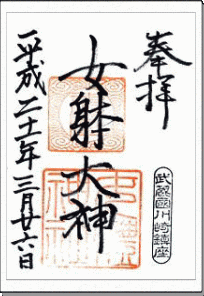 奉拝
武蔵國川崎鎮座
女躰大神
平成二十一年三月廿六日